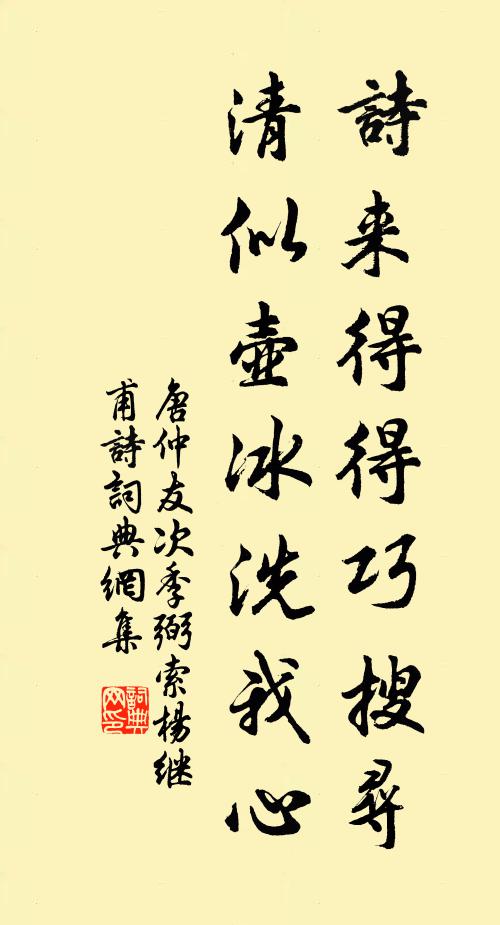 詩来得得巧搜尋
清似壺冰洗我心
唐仲友次季弼索楊继
甫詩詞典網集
詞典
网印